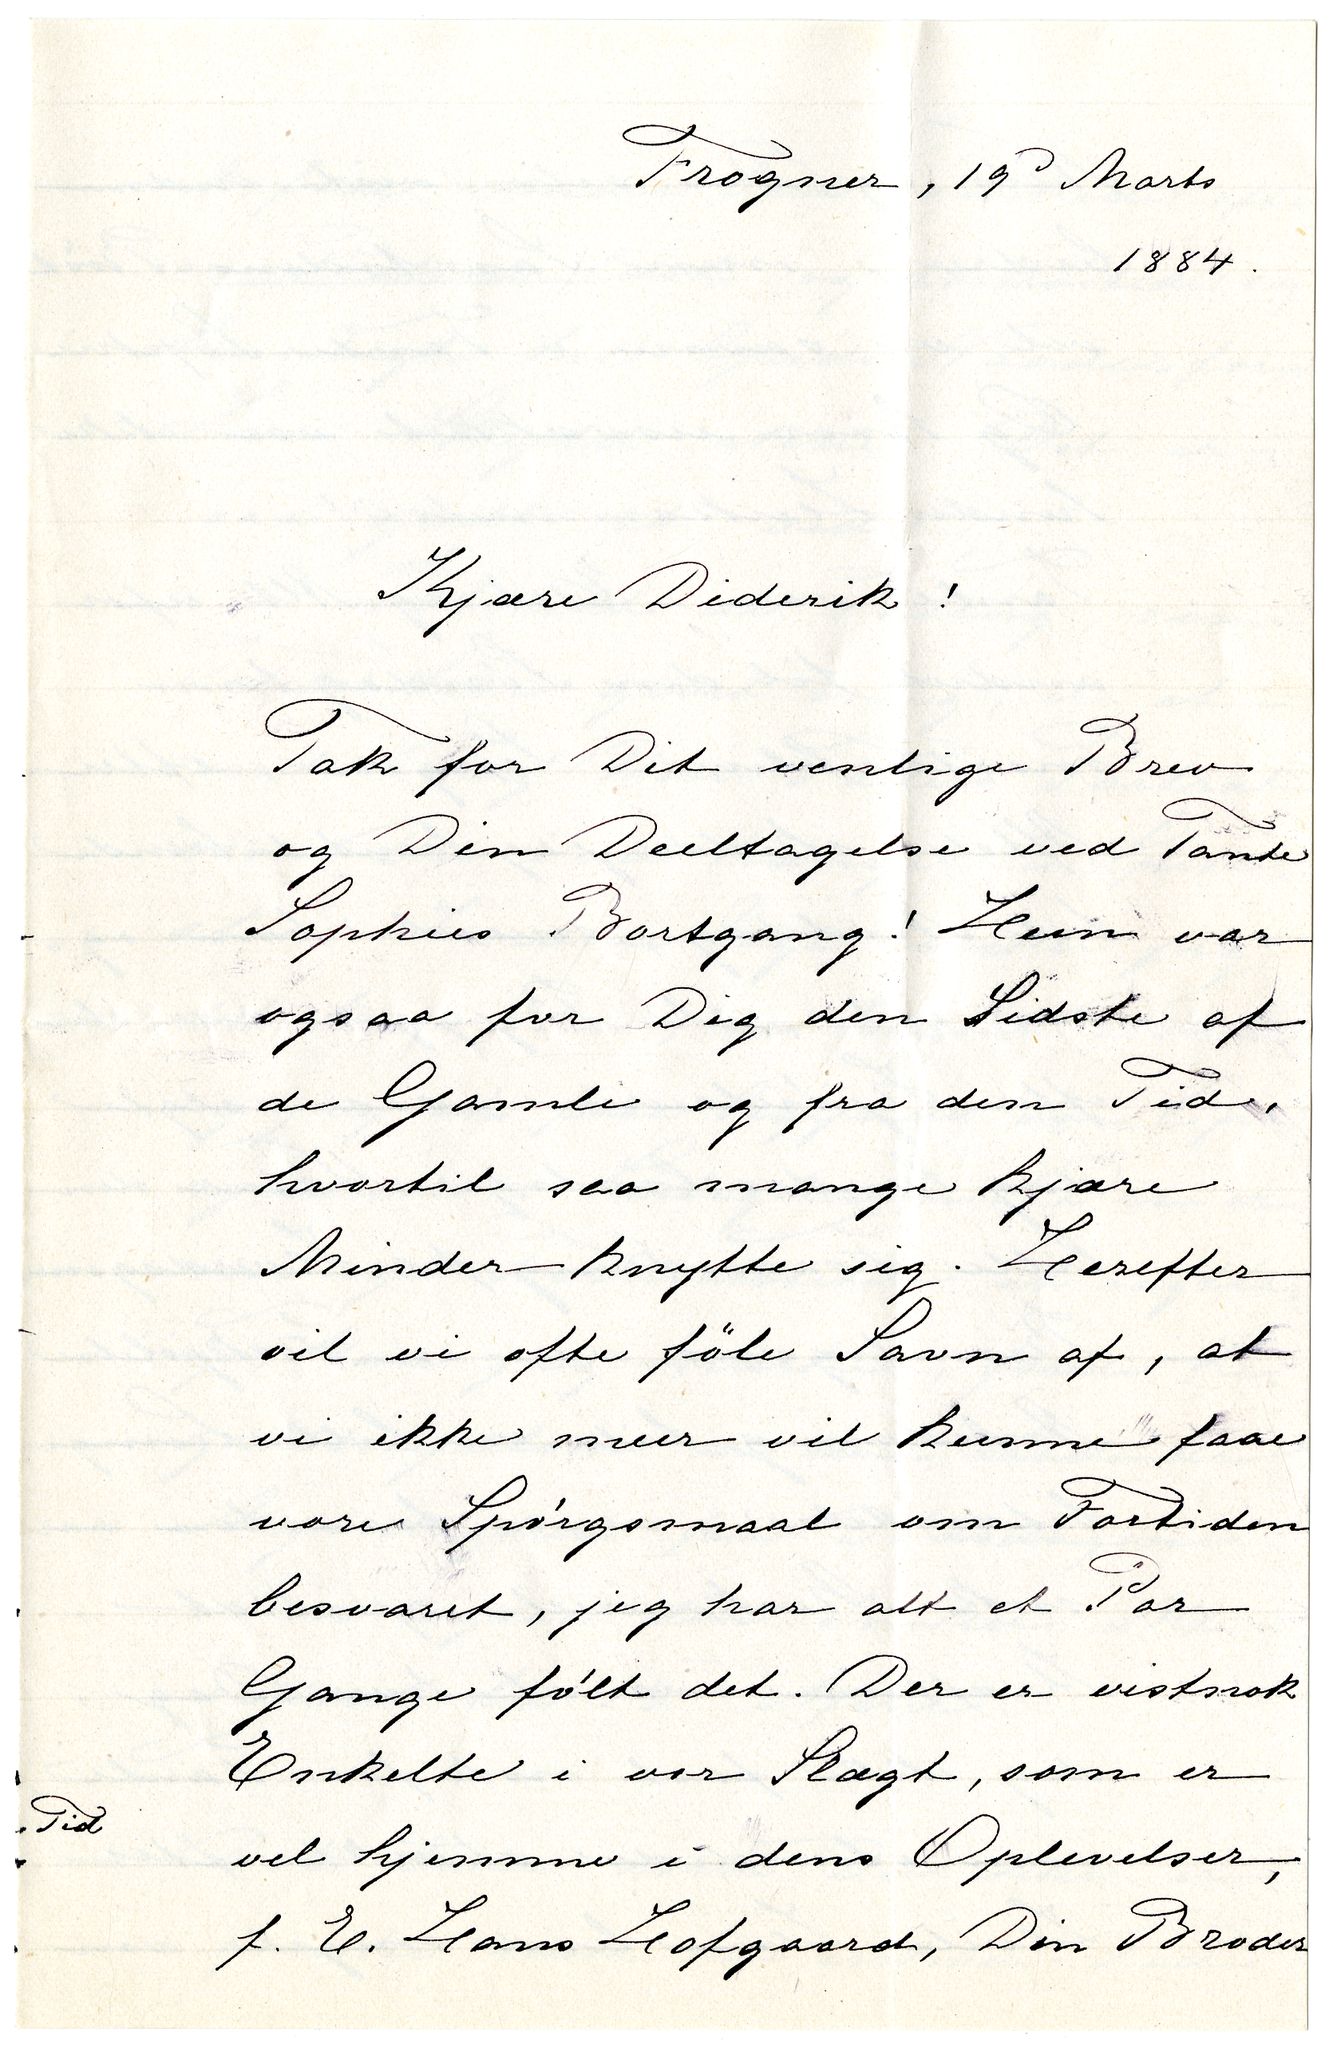 Frogner, 19d Marts
1884.
Kjære Diderik!
Tak for Dit venlige Brev
og Din Deeltagelse ved Tante
Sophies Bortgang! Hun var
ogsaa for Dig den Sidste af
de Gamle og fra den Tid,
hvortil saa mange kjære
Minder knytte sig. Herefter
vil vi ofte föle Savn af, at
vi ikke meer vil kunne faae
vore Spørgsmaal om Fortiden
besvaret, jeg har alt et Par
Gange følt det. Der er vistnok
Enkelte i vor Slægt, som er
vel hjemme i dens Oplevelser,
f. E. Hans Hofgaard, Din Broder
Tid